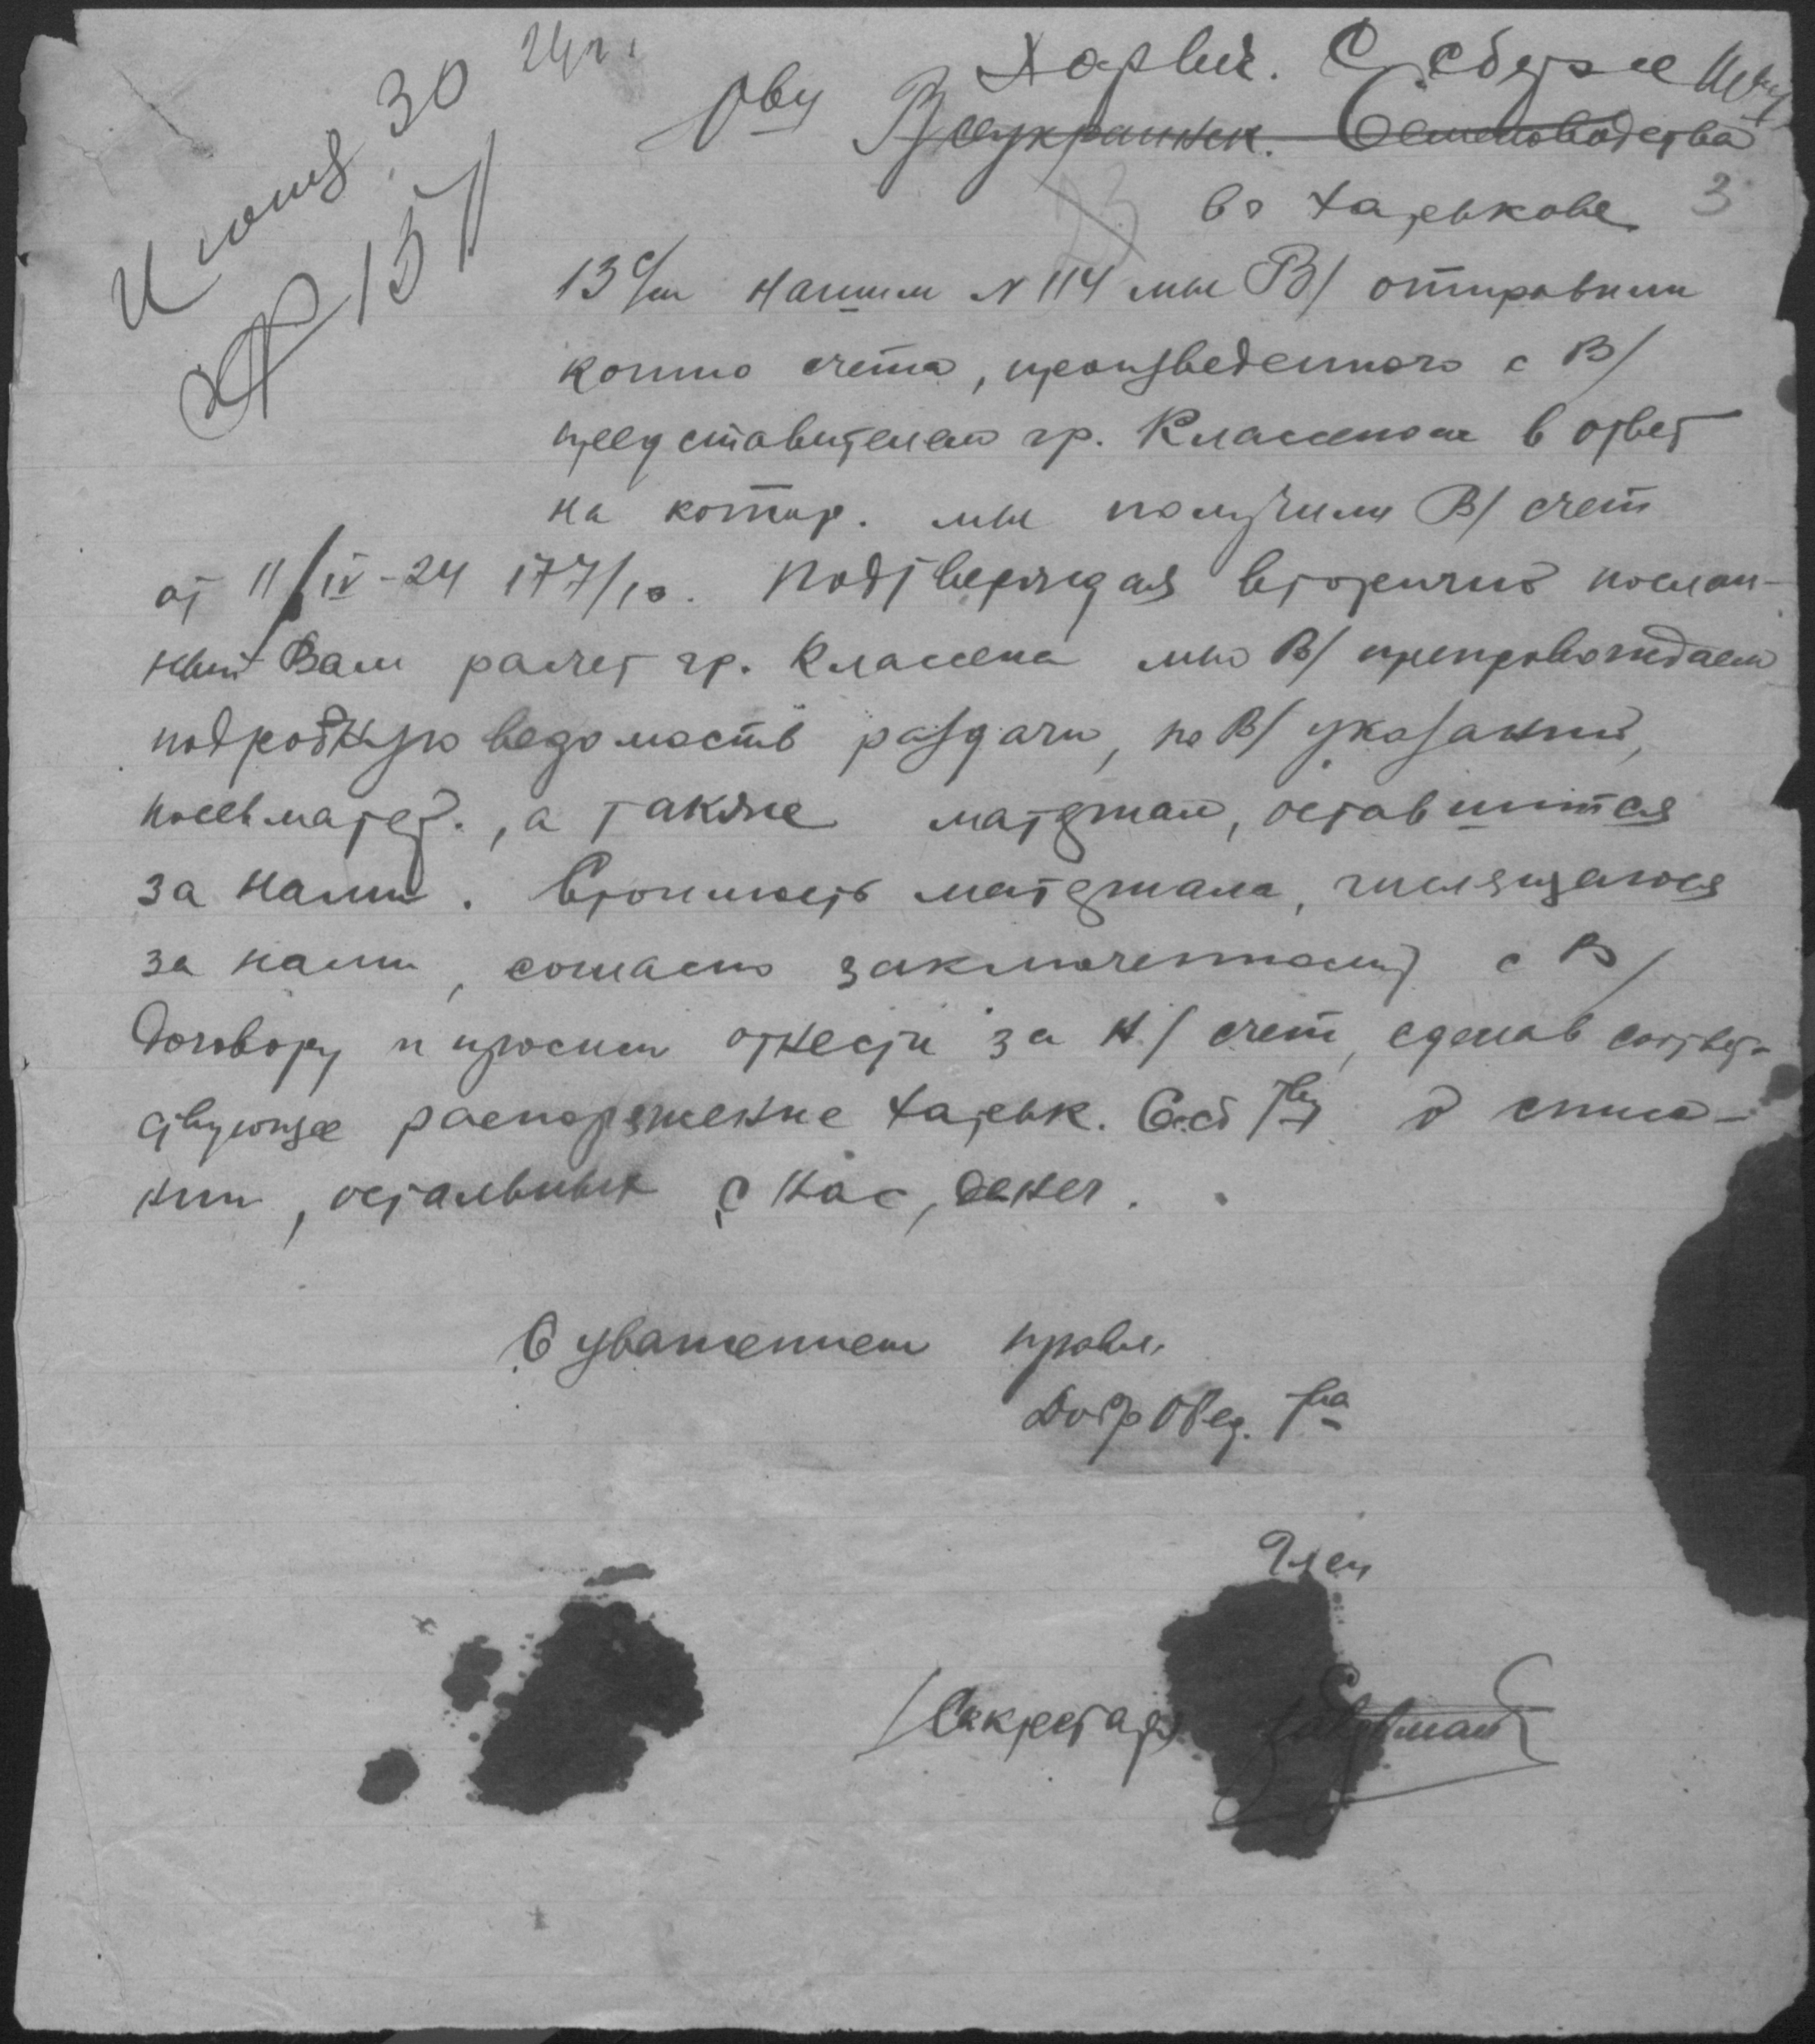 Июня 30 24 г.
№ 151
Харьк. С. об
Ову Всеукраинск. Семеноводства
во Харькове 3
13 с/м нашим N 114 мы В/ отправили
копию счета, произведенного с В/
представителем гр. Классеном в ответ
на котор. мы получили В/ счет
от 11/IV-24 177/10. Подтверждая вторично послан-
ный Вам расчет гр. Классена мы В/ препровождаем
подробную ведомость раздачи, по В/ указаний,
посевматер., а также материал, оставшийся
за нами. Стоимость материала, числящегося
за нами, согласно заключенному с В/
договору и просим отнести за н/ счет, сделав соответ-
ствующее распоряжение Харьк. тву о списа-
нии, остальных с нас, денег.
С уважением правл.
тва
Член
Секретарь